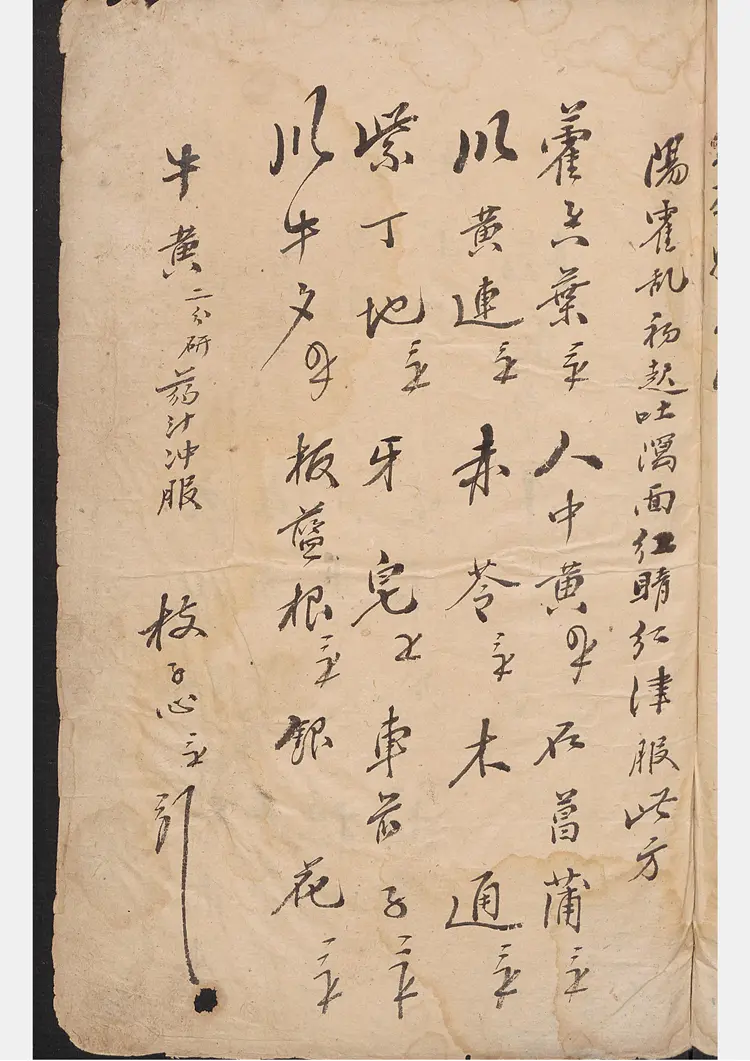 陽霍乱初起吐瀉面红睛红津服此方
藿香葉三錢 人中黄錢半 石菖蒲三錢
川黄連三錢 赤苓三錢 木通三錢
紫丁地三錢 牙皂 車前子三錢
川牛夕錢半 板藍根三錢 銀花三錢
牛黄二分研药汁冲服 枝子心三錢 引